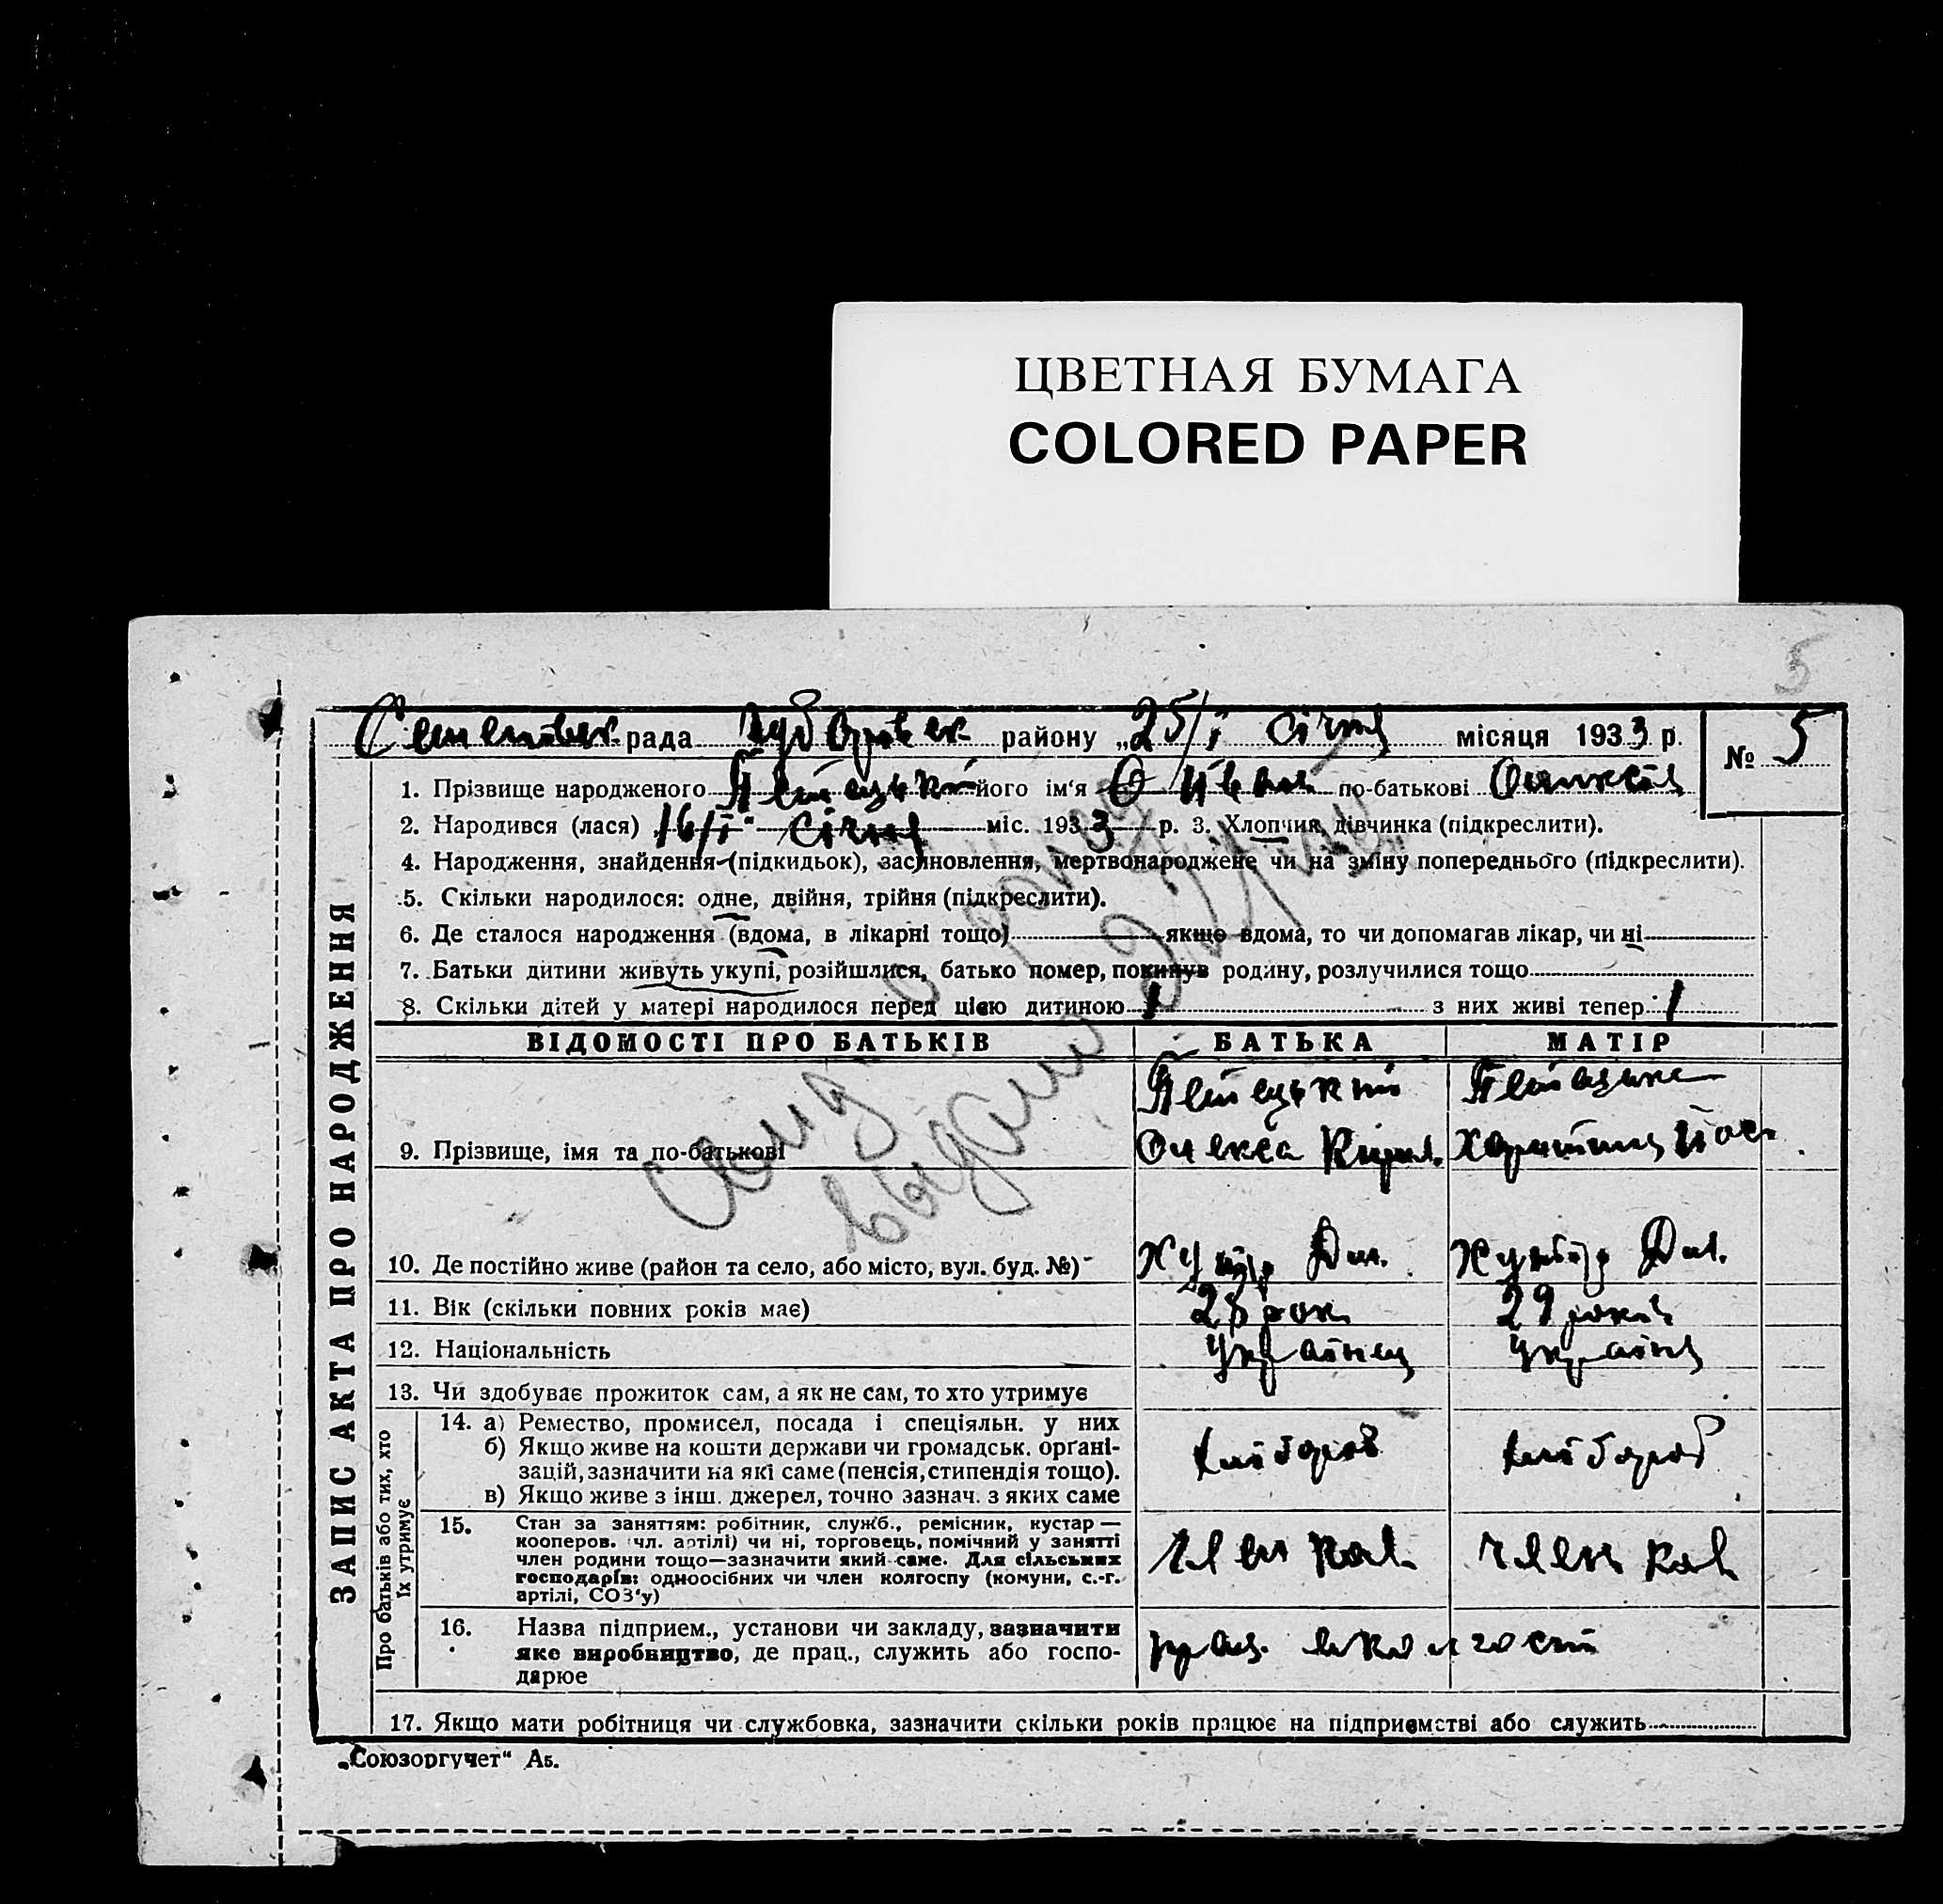 ЦВЕТНАЯ БУМАГА
COLORED PAPER
5
рада району „25/I Січня місяця 1933 р. № 5
1. Прізвище народженого його ім‘я Іван по-батькові
2. Народився (лася) 16/I" Січня міс. 1933 р. 3. Хлопчик, дівчинка (підкреслити).
4. Народження, знайдення (підкидьок), засиновлення, мертвонароджене чи на зміну попереднього (підкреслити).
5. Скільки народилося: одне, двійня, трійня (підкреслити).
6. Де сталося народження (вдома, в лікарні тощо) якщо вдома, то чи допомагав лікар, чи ні
7. Батьки дитини живуть укупі, розійшлися, батько помер, покинув родину, розлучилися тощо
8. Скільки дітей у матері народилося перед цією дитиною 1 з них живі тепер 1
ЗАПИС АКТА ПРО НАРОДЖЕННЯ
ВІДОМОСТІ ПРО БАТЬКІВ БАТЬКА МАТІР
9. Прізвище, імя та по-батькові Олекса Кирил.
10. Де постійно живе (район та село, або місто, вул. буд. №) Хутір Хутір
11. Вік (скільки повних років має) 28 рок. 29 років
12. Національність Українец Україн
13. Чи здобуває прожиток сам, а як не сам, то хто утримує
Про батьків або тих, хто їх утримує
14. а) Ремество, промисел, посада і спеціяльн. у них
б) Якщо живе на кошти держави чи громадськ. орґані-
зацій, зазначити на які саме (пенсія, стипендія тощо).
в) Якщо живе з інш. джерел, точно зазнач. з яких саме
хлібороб хлібороб
15. Стан за заняттям: робітник, служб., ремісник, кустар —
кооперов. (чл. артілі) чи ні, торговець, помічний у занятті
член родини тощо—зазначити який саме. Для сільських
господарів: одноосібних чи член колгоспу (комуни, с.-г.
артілі, СОЗ‘у)
член кол. член кол.
16. Назва підприєм., установи чи закладу, зазначити
яке виробництво, де прац., служить або госпо-
дарює
прац. в колгоспі
17. Якщо мати робітниця чи службовка, зазначити скільки років працює на підприємстві або служить
„Союзоргучет“ Аб.